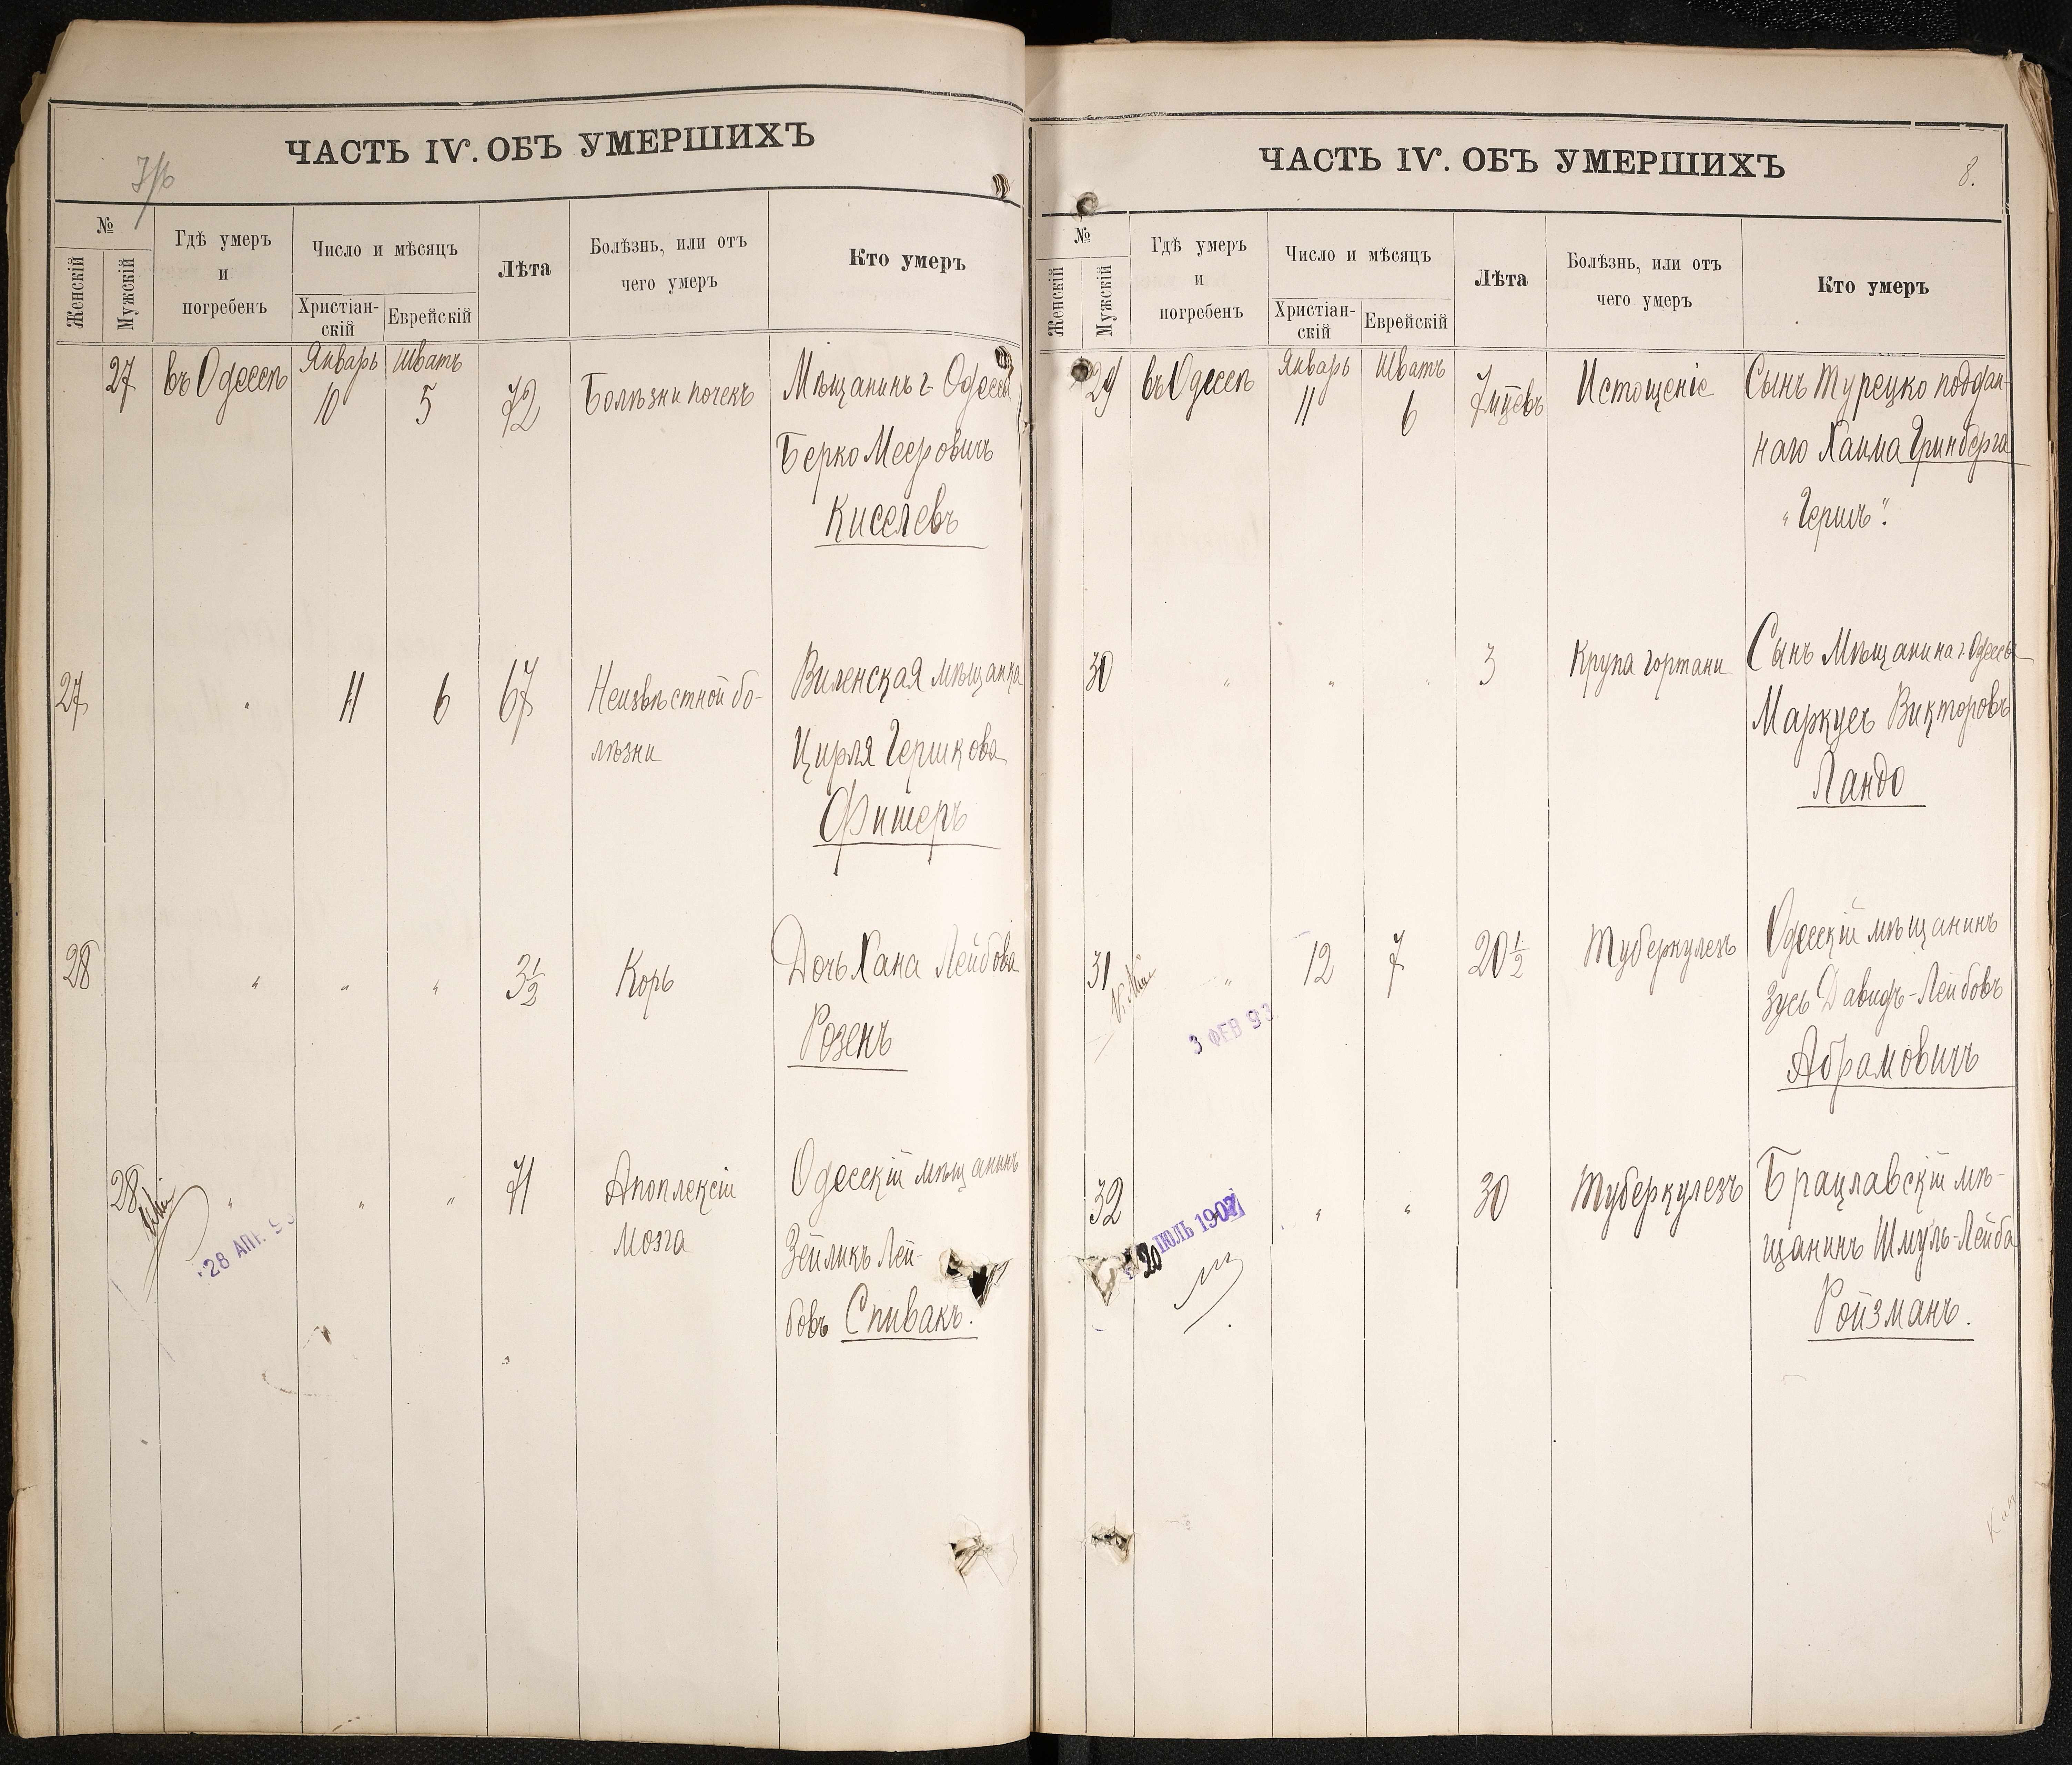 ЧАСТЬ IV. ОБЪ УМЕРШИХЪ
№
Женскій
Мужскій
Гдѣ умеръ
и
погребенъ
Число и мѣсяцъ
Христіан-
скій
Еврейскій
Лѣта
Болѣзнь, или отъ
чего умеръ
Кто умеръ
27 въ Одессѣ Январь 10 Шватъ 5 72 Болѣзни почекъ Мѣщанинъ г. Одессы
Берко Мееровичъ
Киселевъ
27 " 11 6 67 Неизвѣстной бо- Виленская мѣщанка
лѣзни Цирля Гершкова
Фишеръ
28 " " " 3½ Корь Дочь Хана Лейбова
Розенъ
28 " " " 71 Апоплексіи Одесскій мѣщанинъ
мозга Зейликъ Лей-
бовъ Спивакъ.
28 АПР. 93
ЧАСТЬ IV. ОБЪ УМЕРШИХЪ
8.
№
Женскій
Мужскій
Гдѣ умеръ
и
погребенъ
Число и мѣсяцъ
Христіан-
скій
Еврейскій
Лѣта
Болѣзнь, или отъ
чего умеръ
Кто умеръ
29 въ Одессѣ Январь 11 Шватъ 6 7 мцевъ Истощеніе Сынъ Турецко поддан-
наго Хаима Гринберга
"Гершъ".
30 " " " 3 Крупа гортани Сынъ Мѣщанина г. Одессы
Маркусъ Викторовъ
Ландо
31 " 12 7 20½ Туберкулезъ Одесскій мѣщанинъ
Зусь Давидъ-Лейбовъ
Абрамовичъ
3 ФЕВ 93
32 " " 30 Туберкулезъ Брацлавскій мѣ-
щанинъ Шмуль-Лейба
Ройзманъ.
20 ІЮЛЬ 1907